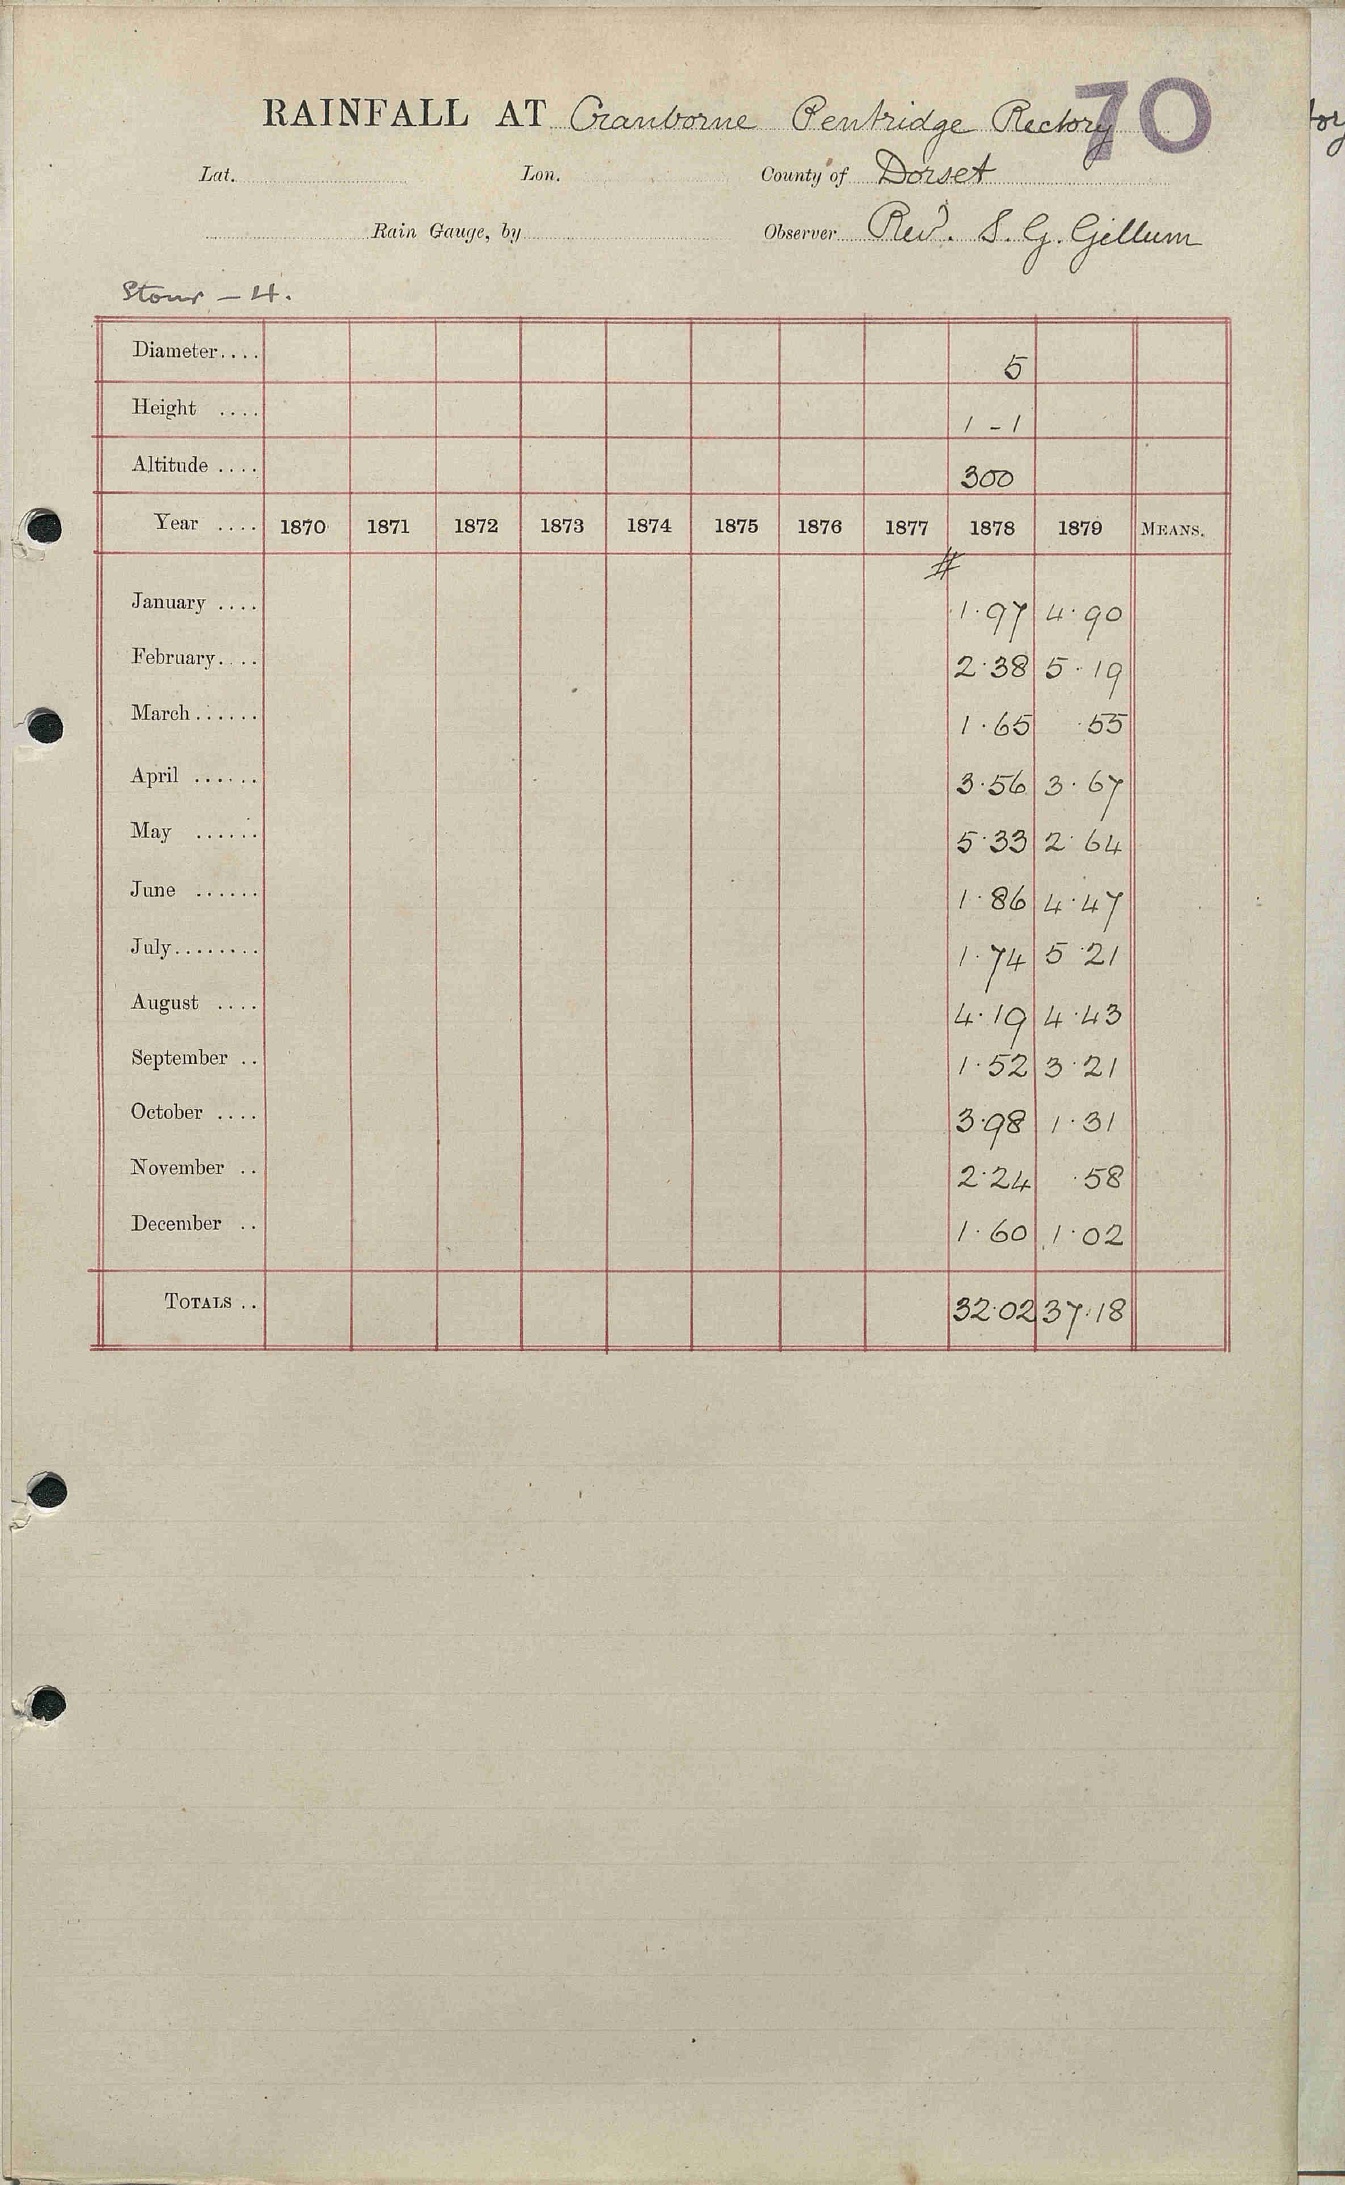 70
RAINFALL AT Cranborne Pentridge Rectory
Lat. Lon. County of Dorset
Rain Gauge, by Observer Rev. S. G. Gillum
Stour - 4.
Diameter.... 5
Height .... 1 - 1
Altitude .... 300
Year .... 1870 1871 1872 1873 1874 1875 1876 1877 1878 1879 MEANS.
#
January .... 1.97 4.90
February.... 2.38 5.19
March...... 1.65 .55
April ...... 3.56 3.67
May ...... 5.33 2.64
June ...... 1.86 4.47
July........ 1.74 5.21
August .... 4.19 4.43
September .. 1.52 3.21
October .... 3.98 1.31
November .. 2.24 .58
December .. 1.60 1.02
TOTALS .. 32.02 37.18